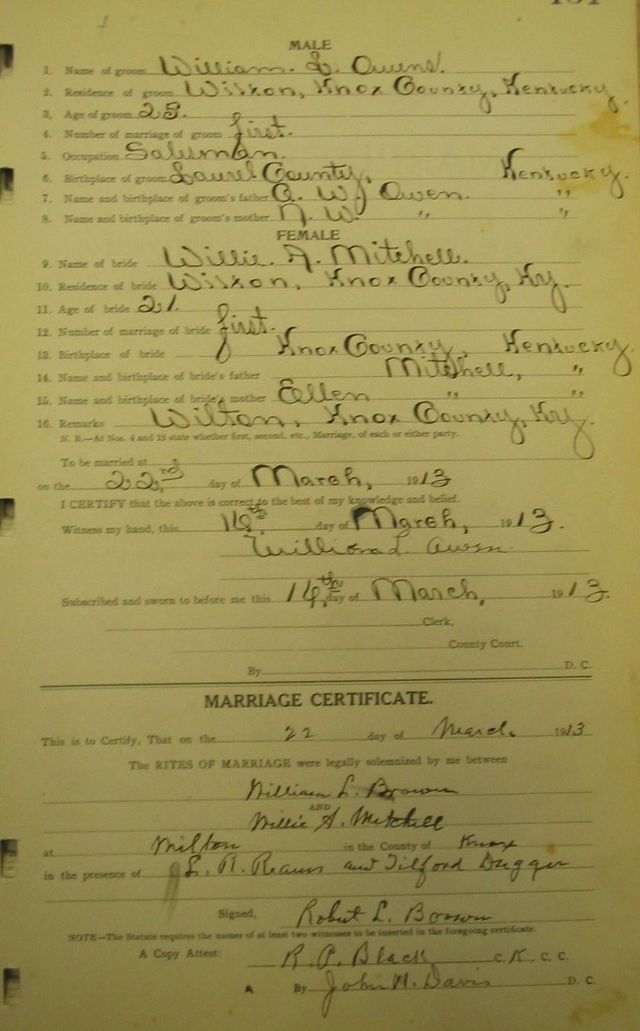 MALE
1. Name of groom William. L. Owens.
2. Residence of groom Wilton, Knox County, Kentucky.
3. Age of groom 23.
4. Number of marriage of groom first.
5. Occupation Salesman.
6. Birthplace of groom Laurel County, Kentucky.
7. Name and birthplace of groom's father W. Owen. "
8. Name and birthplace of groom's mother N. W. " "
FEMALE
9. Name of bride Willie. A. Mitchell.
10. Residence of bride Wilton, Knox County, Ky.
11. Age of bride 21.
12. Number of marriage of bride first.
13. Birthplace of bride Knox County, Kentucky.
14. Name and birthplace of bride's father Mitchell, "
15. Name and birthplace of bride's mother Ellen " "
16. Remarks Wilton, Knox County, Ky.
N. B.—At Nos. 4 and 12 state whether first, second, etc., Marriage, of each or either party.
To be married at
on the 22nd day of March, 1913
I CERTIFY that the above is correct to the best of my knowledge and belief.
Witness my hand, this 14th day of March, 1913.
William L. Owen.
Subscribed and sworn to before me this 14th day of March, 1913.
Clerk,
County Court.
By D. C.
MARRIAGE CERTIFICATE.
This is to Certify, That on the 22 day of March. 1913
The RITES OF MARRIAGE were legally solemnized by me between
William L. Brown
AND
Willie A. Mitchell
at Wilton in the County of Knox
in the presence of L. R. and Tilford Dugger
Signed, Robert L. Brown
NOTE—The Statute requires the names of at least two witnesses to be inserted in the foregoing certificate.
A Copy Attest: R. P. Black C. K. C. C.
By John H. Davis D. C.